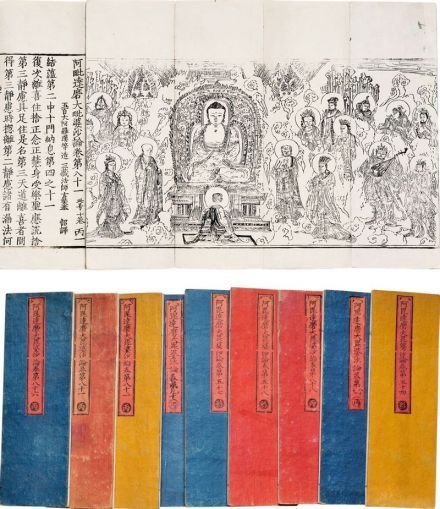 阿毗達磨大毗婆沙論卷第八十一 丙
五百大阿羅漢等造 三藏法師玄奘奉 詔譯
結蘊第二中十門納息第四之十一
復次離喜住捨正念正慧身受樂聖應說捨
第三靜慮具足住是名第三天道離喜者問
得第三靜慮時捴離第二靜慮諸有漏法何
阿毗達磨大毗婆沙論卷第八十六
阿毗達磨大毗婆沙論卷第八十
阿毗達磨大毗婆沙論卷第八十一
阿毗達磨大毗婆沙論卷第
阿毗達磨大毗婆沙論卷第五十七
阿毗達磨大毗婆沙論卷第
阿毗達磨大毗婆沙論卷第八十
阿毗達磨大毗婆沙論卷第
阿毗達磨大毗婆沙論卷第五十四